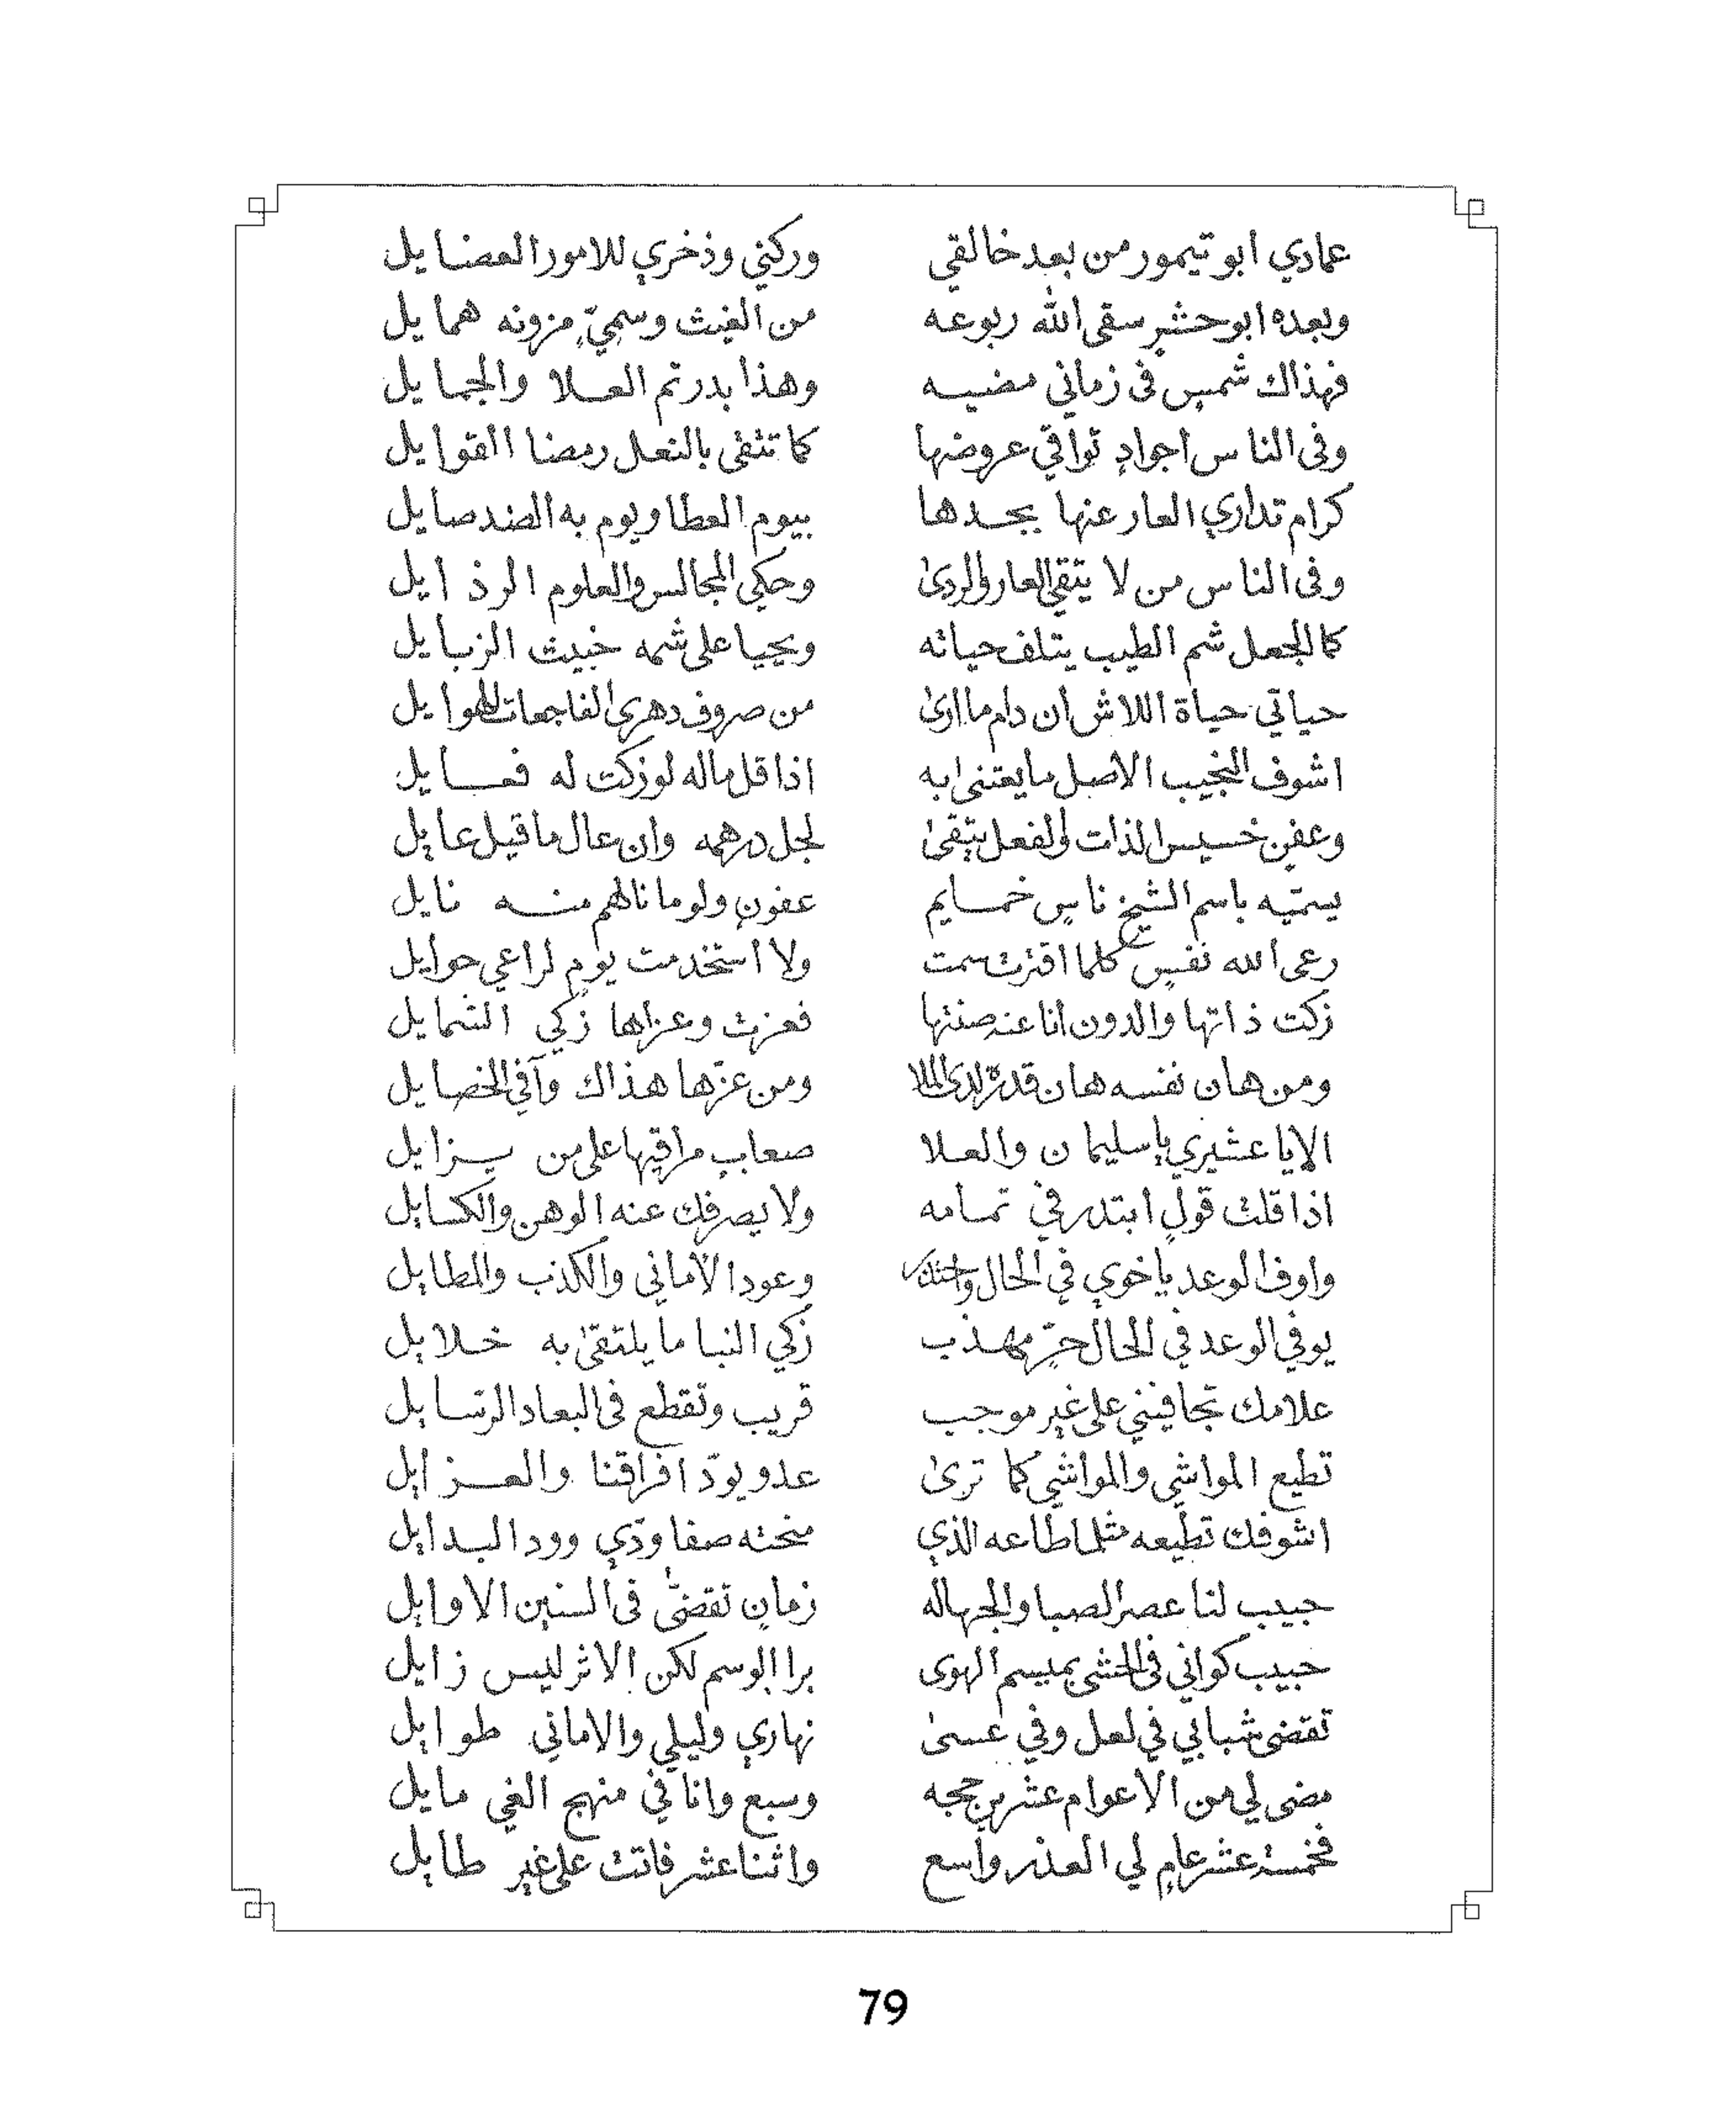 عمادي ابو تيمور من بعد خالقي وركني وذخري للامور العضايل
وبعده ابو حشر سقى الله ربوعه من الغيث وسميٍّ مزونه همايل
فهذاك شمسٍ فى زماني مضيه وهذا بدر تم العلا والجمايل
وفى الناس اجوادٍ تواقي عروضها كما تتقى بالنعل رمضا القوايل
كرام تداري العار عنها بجدها بيوم العطا ويوم به الضد صايل
وفى الناس من لا يتقي العار والردىٰ وحكي المجالس والعلوم الرذايل
كما الجعل شم الطيب يتلف حياته ويحيا على شمه خبيث الزبايل
حياتي حياة اللاش ان دام ما ارىٰ من صروف دهرى الفاجعات الهوايل
اشوف النجيب الاصل ما يعتنى ابه اذا قل ماله لو زكت له فعايل
وعفنٍ خسيس الذات والفعل يتقىٰ لجل درهمه وان عال ما قيل عايل
يسمّيه باسم الشيخ ناسٍ خمايم عفونٍ ولو ما نالهم منه نايل
رعى الله نفسٍ كلما اقترت سمت ولا استخدمت يومٍ لراعي حوايل
زكت ذاتها والدون انا عنه صنتها فعزت وعزاها زكي الشمايل
ومن هان نفسه هان قدره لدى الملا ومن عزّها هذاك وآفي الخصايل
الا يا عشيري يا سليمان والعلا صعابٍ مراقيها على من يزايل
اذا قلت قولٍ ابتدر في تمامه ولا يصرفك عنه الوهن والكسايل
واوف الوعد يا خوي في الحال واحتك وعود الاماني والكذب والمطايل
يوفي الوعد في الحال حرٍّ مهذب زكي النبا ما يلتقىٰ به خلايل
علامك تجافيني على غير موجب قريب وتقطع فى البعاد الرسايل
تطيع المواشي والمواشي كما ترىٰ عدو يودّ افراقنا والعزايل
اشوفك تطيعه مثلما طاعه الذي منحته صفا ودّي وود البدايل
حبيب لنا عصر الصبا والجهاله زمانٍ تقضّى فى السنين الاوايل
حبيب كواني فى الحشى بميسم الهوى برا الوسم لكن الاثر ليس زايل
تقضى شبابي في لعل وفي عسىٰ نهاري وليلي والاماني طوايل
مضى لي من الاعوام عشرين حجه وسبع وانا في منهج الغي مايل
فخمسة عشر عامٍ لي العذر واسع واثنا عشر فاتت على غير طايل
79